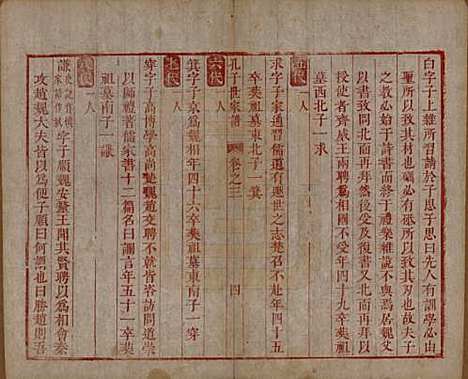 白字子上雜所習請於子思子思曰先人有訓學必由
聖所以致其材也礪所以致其刃也故夫子
之教必始於詩書而終於禮樂雜說不與焉
文以北面再拜然後受及復書又北面再拜以
授使者齊威王兩聘爲相國不受年四十九卒葬祖
墓西北子一求
五代
一人
求字子家通習儒道有遯世之志楚召不赴年四十五
卒葬祖墓東北子一箕
六代
一人
孔子世家譜 卷之 四
箕字子京爲魏相年四十六卒葬祖墓東南子一穿
七代
一人
穿字子高博學高尚楚魏趙交聘不就肯客訪問道崇
以師禮著儒家書十二篇名曰讕言年五十一卒葬
祖墓南子一謙
八代
一人
謙字子順魏安釐王聞其賢聘以爲相會秦
攻趙魏大夫皆以爲便子順曰何謂也曰勝趙則吾